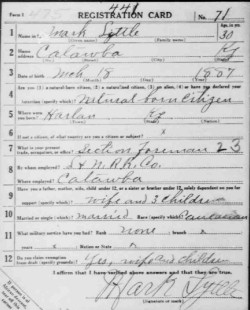 Form 1
441
REGISTRATION CARD
No. 71
1 Name in full Mark Little
(Family name)
Age, in yrs. 30
2 Home address Calawba Ky
3 Date of birth Mch 18
(Month) (Day) (Year)
4 Are you (1) a natural-born citizen, (2) a naturalized citizen, (3) an alien, (4) or have you declared your
intention (specify which)? Natural born Citizen
5 Where were you born? Harlan Ky
6 If not a citizen, of what country are you a citizen or subject? x
7 What is your present trade, occupation, or office? Section Foreman 23
8 By whom employed? L & N. R.R. Co.
Where employed? Calawba
9 Have you a father, mother, wife, child under 12, or a sister or brother under 12, solely dependent on you for
support (specify which)? wife and 3 children
10 Married or single (which)? married Race (specify which)? Caucasian
11 What military service have you had? Rank none ; branch x
years x Nation or State x
12 Do you claim exemption
from draft (specify grounds)? Yes, wife and children
I affirm that I have verified above answers and that they are true.
Mark Lyttle
(Signature or mark)